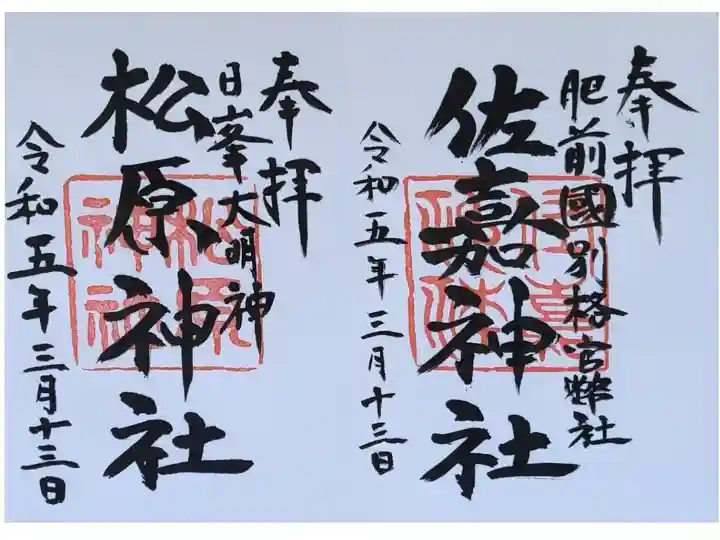 奉拝
肥前國別格官幣社
佐嘉神社
佐嘉神社
令和五年三月十三日
奉拝
日峯大明神
松原神社
松原神社
令和五年三月十三日